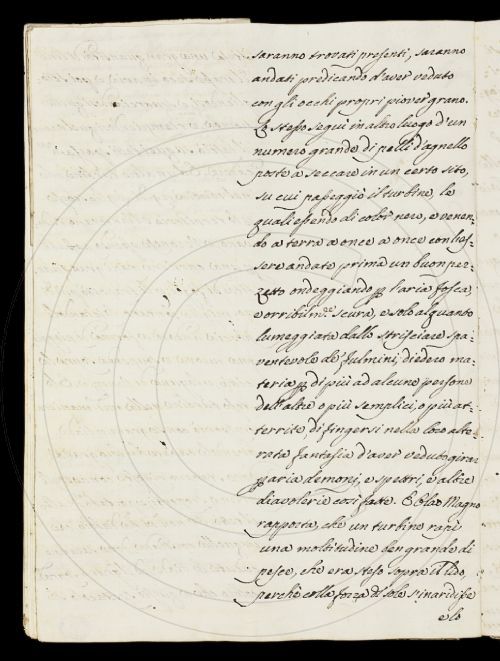 saranno trovati presenti, saranno
andati predicando d'aver veduto
con gli occhi propri piover grano.
Lo stesso seguì in altro luogo d'un
numero grande di pelli d'agnello
poste a seccare in un certo sito,
su cui passeggiò il turbine, le
quali essendo di color nero, e venen-
do a terra a once a once con l'es-
sere andate prima un buon pez-
zetto ondeggiando p l'aria fosca,
e orribilm.te scura, e solo alquanto
lumeggiata dallo strisciare spa-
ventevole de' fulmini, diedero ma-
teria p di più ad alcune persone
dell'altre o più semplici, o più at-
territe, di fingersi nella loro alte-
rata fantasia d'aver veduto girar
p aria demoni, e spettri, e altre
diavolerie così fatte. E Olao Magno
rapporta, che un turbine rapì
una moltitudine ben grande di
pesce, che era steso sopra il lido,
perchè colla forza di sole s'inaridisse
e lo